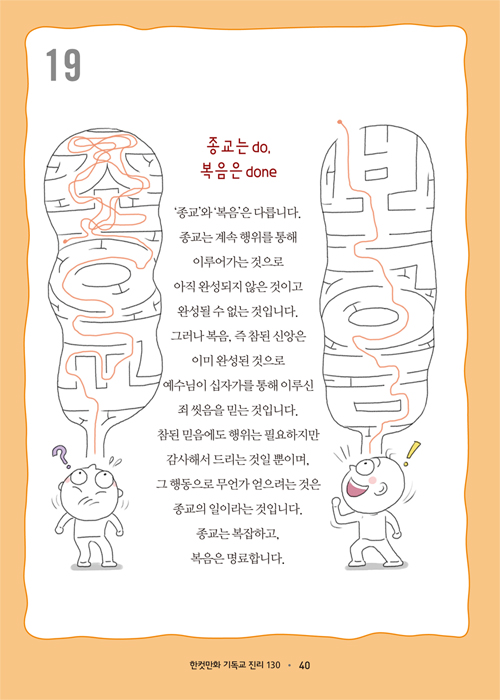 19
종교
복음
종교는 do,
복음은 done
‘종교’와 ‘복음’은 다릅니다.
종교는 계속 행위를 통해
이루어가는 것으로
아직 완성되지 않은 것이고
완성될 수 없는 것입니다.
그러나 복음, 즉 참된 신앙은
이미 완성된 것으로
예수님이 십자가를 통해 이루신
죄 씻음을 믿는 것입니다.
참된 믿음에도 행위는 필요하지만
감사해서 드리는 것일 뿐이며,
그 행동으로 무언가 얻으려는 것은
종교의 일이라는 것입니다.
종교는 복잡하고,
복음은 명료합니다.
?
!
한컷만화 기독교 진리 130 • 40